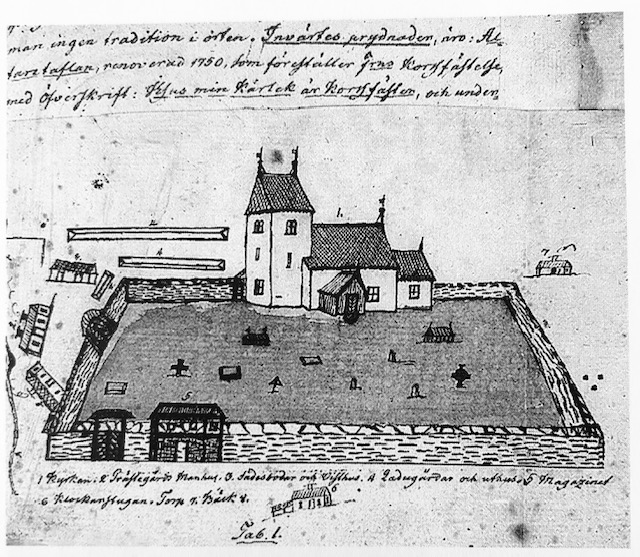 man ingen tradition i orten. Invärtes prydnader, äro: Al-
taretaflan, renoverad 1750, som föreställer Jesu Korsfästelse,
med öfverskrift: Jesus min Kärlek är Korsfäster, och under
1.
2
4
7
5
1 Kyrkan. 2 Prästegårds Manhus. 3. Sädesbodar och Visthus. 4 Ladugårdar och uthus. 5 Magazinet
6 Klockarstugan. Torp 7. Bäck 8.
6
Tab. 1.